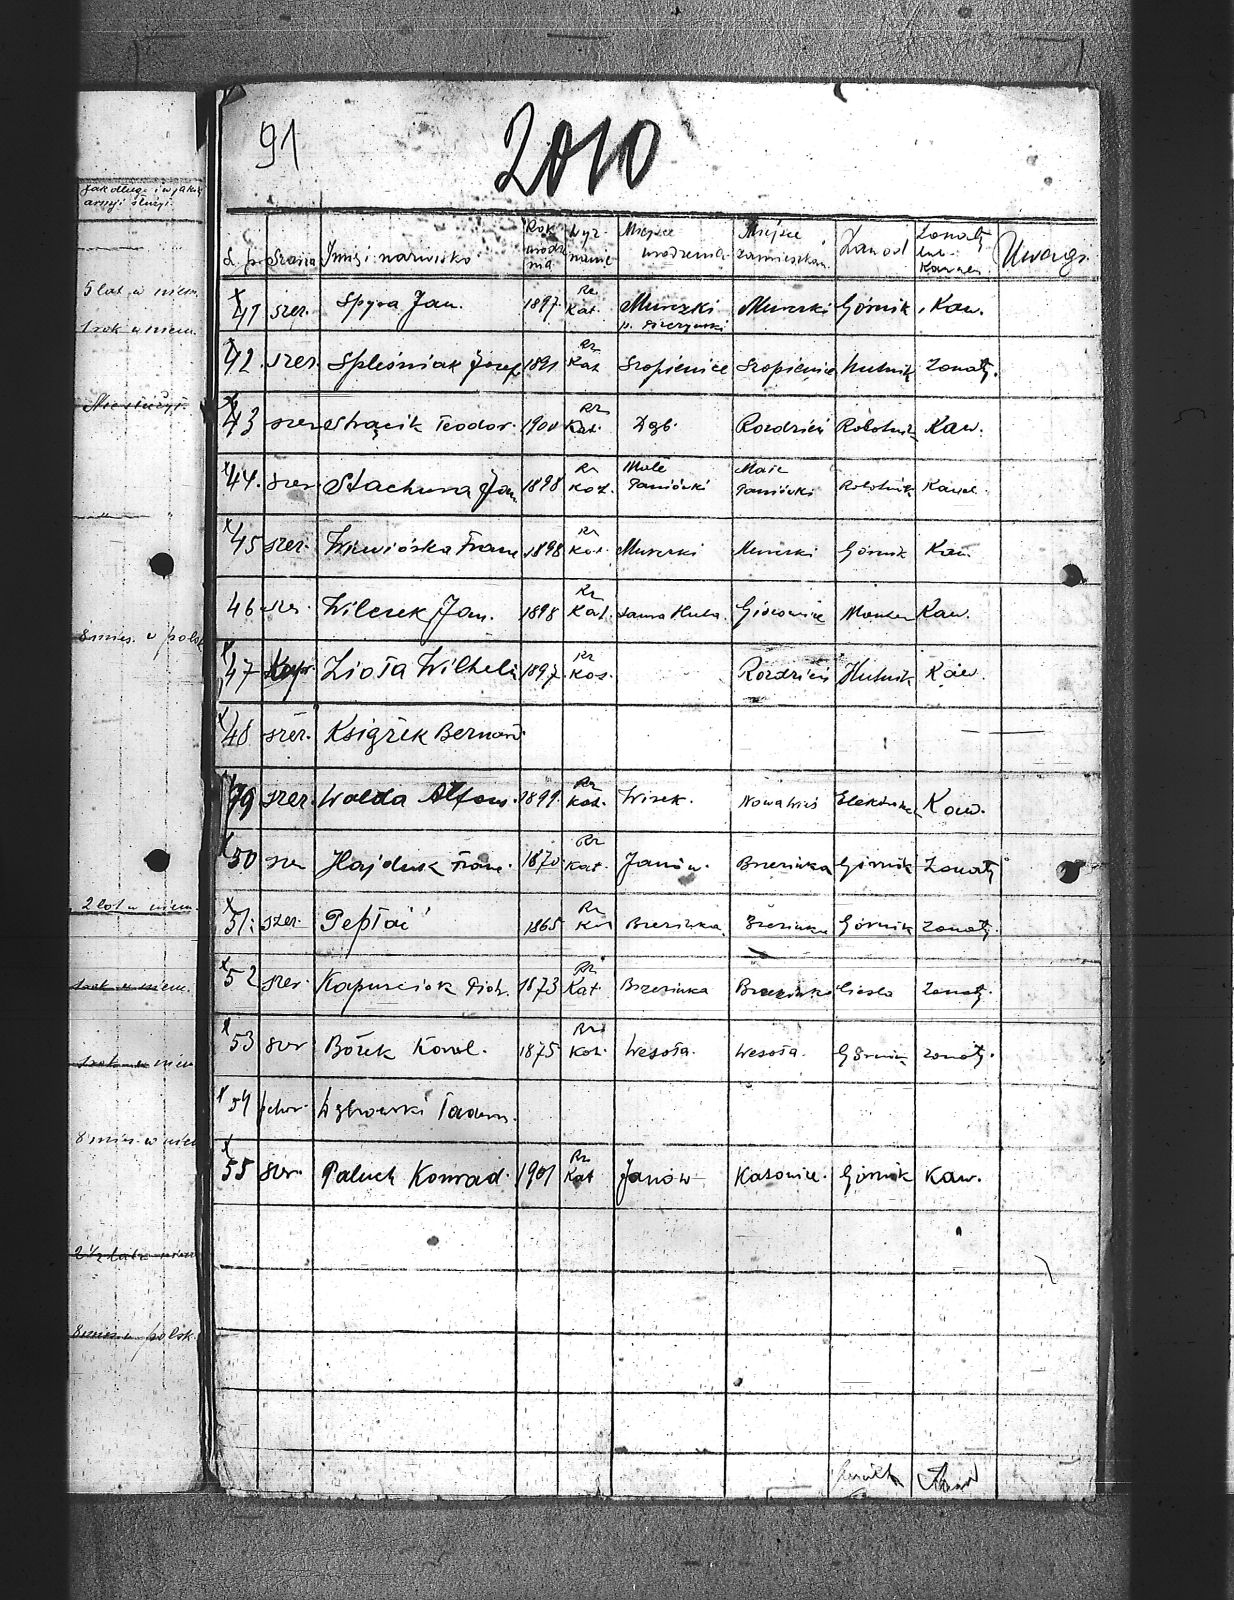 91
2010
Jak długo i w jakiej
armji służył.
5 lat w niem.
1 rok w niem.
Nie służył.
8 mies. w polsk
2 lat w niem.
8 mies. w niem
2 1/2 lata w niem
8 mies. w polsk.
L. p. Szarża Imię i nazwisko Rok urodze nia Wyz- nanie Miejsce urodzenia Miejsce zamieszkan. Zawod Żonaty lub Kawaler Uwagi
x 41 szer. Spyra Jan. 1897 Rz Kat. Murcki Murcki Górnik Kaw.
x 42. szer. Spleśniak Józef 1891 Rz Kat Szopienice Szopienice Hutnik Żonaty.
x 43 szer Strącik Teodor. 1900 Rz Kat. Dąb. Rozdzień Robotnik Kaw.
x 44. szer Stachura Jan 1898 Rz Kat. Małe Paniówki Małe Paniówki Robotnik Kawal.
x 45 szer. Wiewióska Franc 1898 Rz Kat. Murcki Murcki Górnik Kaw.
46 szer. Wilczek Jan. 1898 Rz Kat. Laura Huta. Giszowiec Monter Kaw.
x 47 Kapr. Zioła Wilhelm 1897. Rz Kat. Rozdzień Hutnik Kaw.
x 48 szer. Książek Bernard
x 49 szer. Walda Alfons. 1899 Rz Kat. Wirek. Nowa Wieś Elektrom. Kaw.
x 50 szer Hajduk Franc. 1870 Rz Kat. Janów. Brzezinka Górnik Żonaty
x 51. szer. Peptać 1865 Rz Kat Brzezinka. Brzezinka Górnik Żonaty.
x 52 szer. Kapuściok Piotr. 1873 Rz Kat Brzezinka Brzezinka Ciesla Żonaty.
x 53 szer Bórek Karol. 1875 Rz Kat. Wesoła. Wesoła. Górnik Żonaty.
x 54 pchor. Dąbrowski Tadeusz.
x 55 szer. Paluch Konrad. 1901 Rz Kat Janów Katowice. Górnik Kaw.